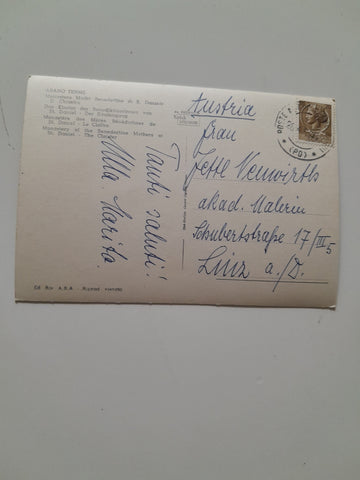 ABANO TERME
Monastero Madri Benedettine di S. Daniele
Il Chiostro
Das Kloster der Benediktinerinnen von
St. Daniel - Der Kreuzgang
Monastère des Mères Bénédictines de
St. Daniel - Le Cloître
Monastery of the Benedictine Mothers at
St. Daniel - The Cloister
Tanti saluti!
Marita.
Ed. Rix A.B.A. - Riprod. vietata
Austria
Frau
Jette Neuwirth
akad. Malerin
Schubertstraße 17/III 5
Linz a./D.
(PD)